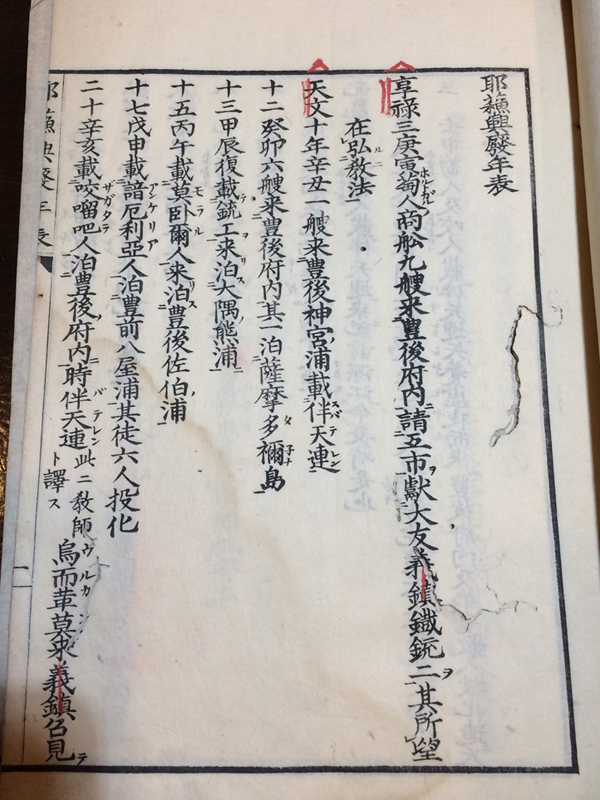 耶蘇興廢年表
享祿三庚寅蔔人商舩九艘来豊後府内請互市獻大友義鎮鐵銃二其所望
在弘教法
天文十年辛丑一艘来豊後神宮浦載伴天連
十二癸卯六艘来豊後府内其一泊薩摩多禰島
十三甲辰復載銃工来泊大隅熊浦
十五丙午載莫卧爾人来泊豊後佐伯浦
十七戊申載諳厄利亞人泊豊前八屋浦其徒六人投化
二十辛亥載咬𠺕吧人泊豊後府内時伴天連此ニ教師ト譯ス烏而革莫来義鎮召見
耶蘇興廢年表
一